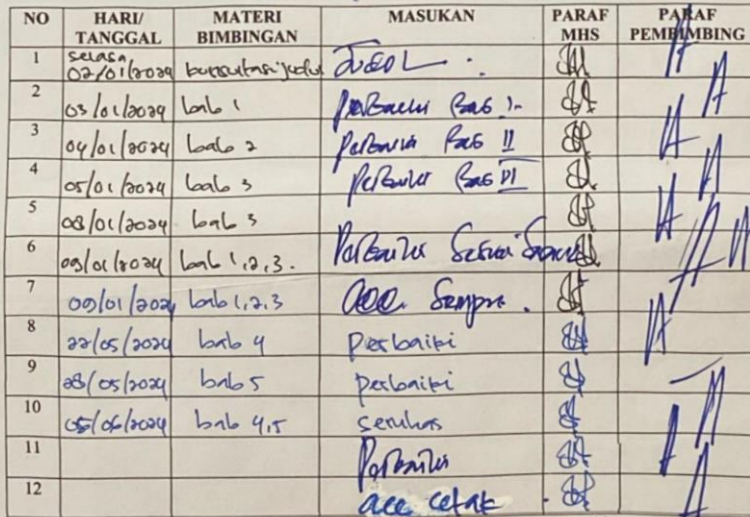 NO HARI/ TANGGAL MATERI BIMBINGAN MASUKAN PARAF MHS PARAF PEMBIMBING
1 selasa 02/01/2024 konsultasi judul Judul
2 03/01/2024 bab 1 Perbaiki Bab I
3 04/01/2024 bab 2 Perbaiki Bab II
4 05/01/2024 bab 3 Perbaiki Bab III
5 08/01/2024 bab 3
6 09/01/2024 bab 1,2,3. Perbaiki Sesuai Saran
7 09/01/2024 bab 1,2,3 acc Sempro.
8 22/05/2024 bab 4 perbaiki
9 28/05/2024 bab 5 perbaiki
10 05/06/2024 bab 4,5 semhas
11 Perbaiki
12 acc cetak